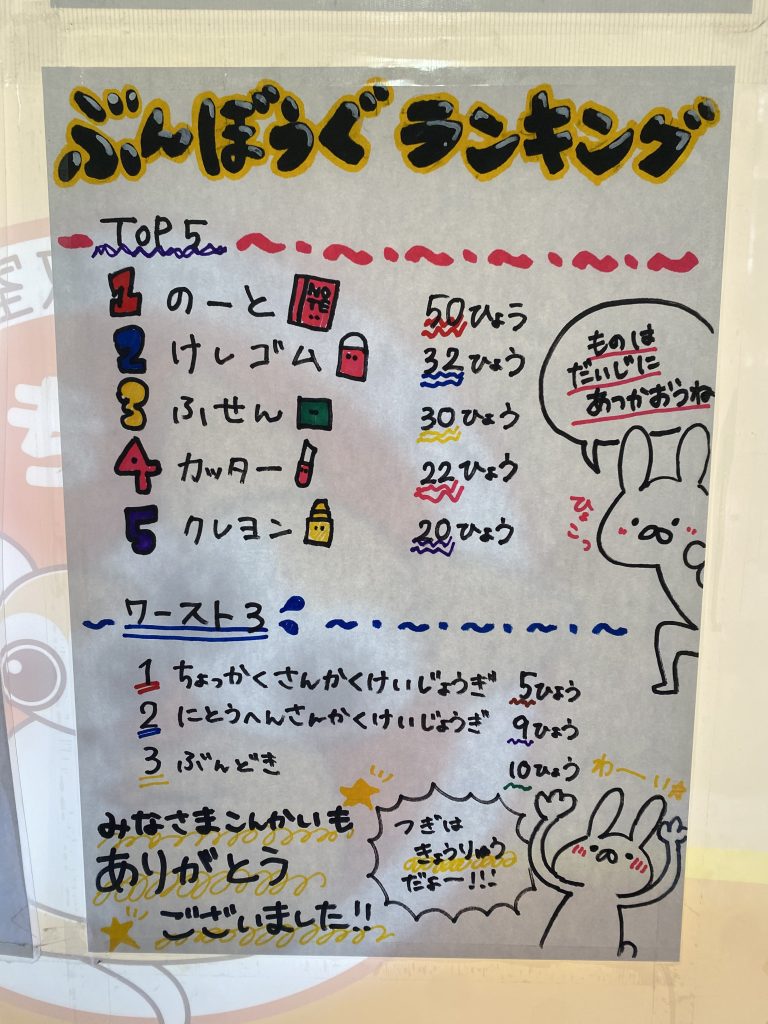 ぶんぼうぐランキング
TOP 5
1 のーと NOTE 50ひょう
2 けしゴム 32ひょう
3 ふせん 30ひょう
4 カッター 22ひょう
5 クレヨン 20ひょう
ものは
だいじに
あつかおうね
ひょこっ
ワースト3
1 ちょっかくさんかくけいじょうぎ 5ひょう
2 にとうへんさんかくけいじょうぎ 9ひょう
3 ぶんどき 10ひょう
わーい☆
みなさまこんかいも
ありがとう
ございました!!
つぎは
きょうりゅう
だよー!!!